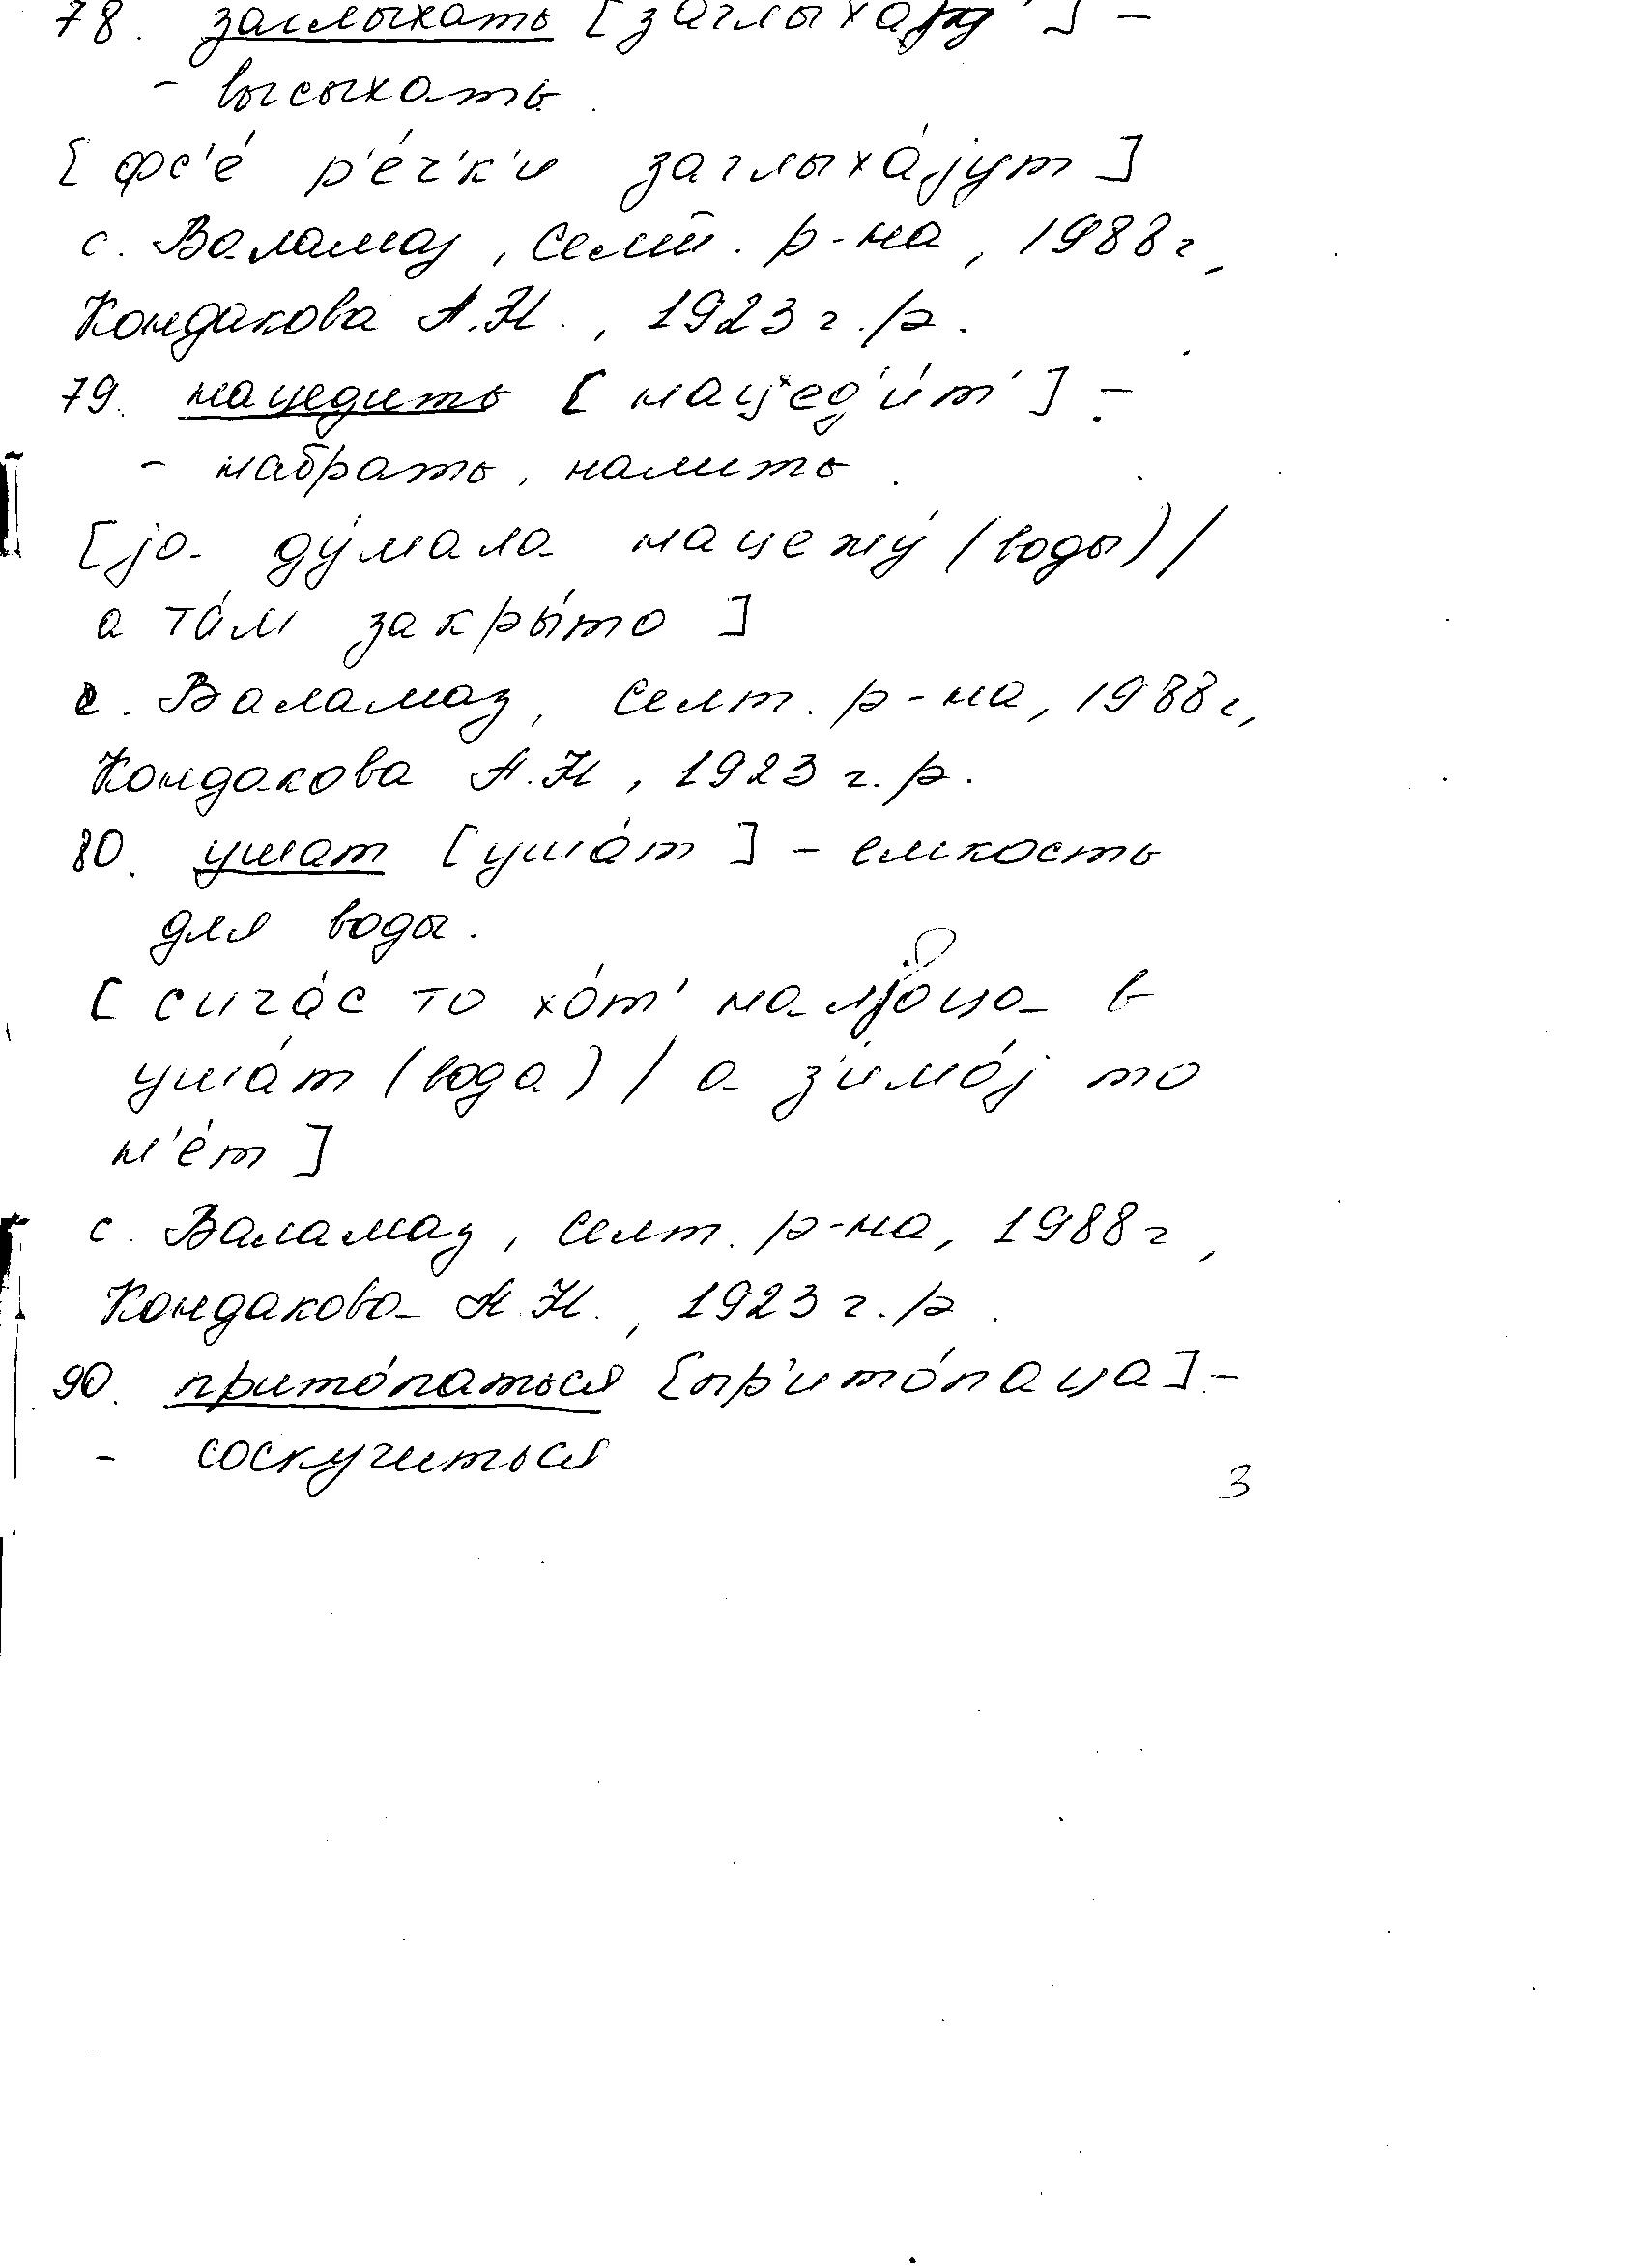 78. заглыхать [заглыха́т'] –
- высыхать.
[фс'е́ р'е́ч'к'и заглыха́јут]
с. Валамаз, Селт. р-на, 1988 г,
Кондакова А.Н., 1923 г.р.
79. нацедить [нацед'и́т'] –
- набрать, налить.
[ја ду́мала нацежу́ (воды) /
а та́м закры́то]
с. Валамаз, Селт. р-на, 1988 г,
Кондакова А.Н, 1923 г.р.
80. ушат [уша́т] – емкость
для воды.
[сича́с то хо́т' в
уша́т (вода) / а з'имо́ј то
н'е́т]
с. Валамаз, Селт. р-на, 1988 г,
Кондакова А.Н., 1923 г.р.
90. прито́паться [пр'ито́паца] –
- соскучиться
3